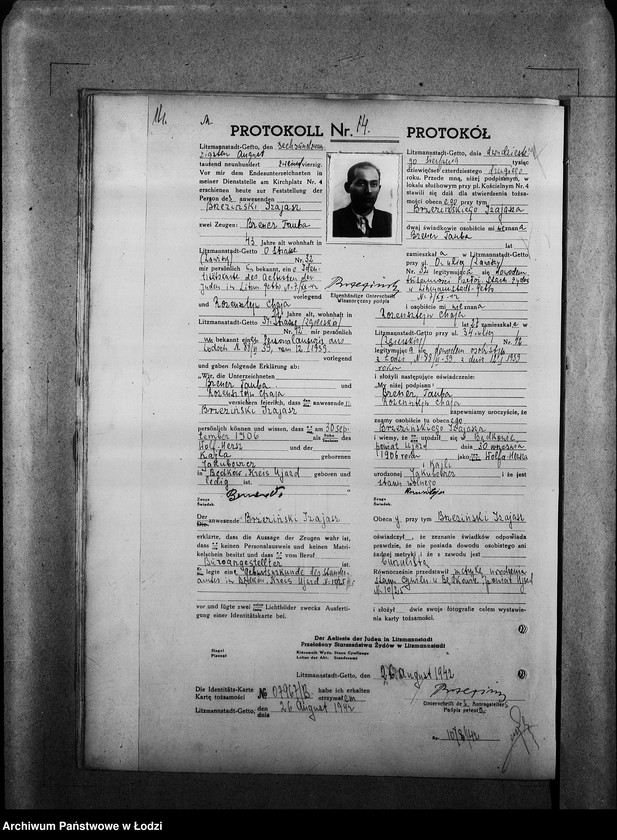 14.
PROTOKOLL Nr. 14. PROTOKÓŁ
Litzmannstadt-Getto, den sechsundzwan-
zigsten August
tausend neunhundert zweiundvierzig.
Vor mir dem Endesunterzeichneten in
meiner Dienststelle am Kirchplatz Nr. 4
erschienen heute zur Feststellung der
Person des anwesenden
Brzeziński Izajasz
zwei Zeugen: Brener Tauba
43 Jahre alt wohnhaft in
Litzmannstadt-Getto O Straße
Nr. 32
mir persönlich bekannt, ein
titätskarte des Aeltesten der
Juden in Litzm. Getto N.7/XX-ur
vorlegend
und Rozensztejn Chaja
Jahre alt, wohnhaft in
Litzmannstadt-Getto
Nr. 76 mir persönlich
bekannt einen Personalausweis aus
Lodsch N.88/II-39, vom 12.I.1939.
vorlegend
und gaben folgende Erklärung ab:
„Wir, die Unterzeichneten
Brener Tauba und
Rozensztejn Chaja
versichern feierlich, dass anwesende
Brzeziński Izajasz
persönlich können und wissen, dass er am 30 sep-
tember 1906 als Sohn
Wolf-Hersz und der
Kajla geborenen
Jakubowicz
in Będków, Kreis Ujazd geboren und
ledig ist.
Zeuge
Świadek
Der anwesende Brzeziński Izajasz
erklärte, dass die Aussage der Zeugen wahr ist,
dass er keinen Personalausweis und keinen Matri-
kelschein besitzt und dass er vom Beruf
Büroangestellter ist.
Er legte eine Geburtsurkunde des Standes-
amtes in Będków, Kreis Ujazd N.10/25
vor und fügte zwei Lichtbilder zwecks Ausferti-
gung einer Identitätskarte bei.
Brzeziński
Eigenhändige Unterschrift
Własnoręczny podpis
Litzmannstadt-Getto, dnia dwudzieste-
go sierpnia tysiąc
dziewięćset czterdziestego drugiego
roku. Przede mną, niżej podpisanym, w
lokalu służbowym przy pl. Kościelnym Nr. 4
stawili się dziś dla stwierdzenia tożsa-
mości obecnego przy tym
Brzezińskiego Izajasza
dwaj świadkowie osobiście mi nieznana
Brener Tauba
lat
zamieszkała w Litzmannstadt-Getto
przy ul. O. ulicy
Nr. 32 legitymująca się dowodem
tożsamości Przeł. Starsz. Żydów
w Litzmannstadt-Getto
N.7/XX-ur
i osobiście mi nieznana
Rozensztejn Chaja
lat zamieszkała w
Litzmannstadt-Getto przy ul. 34. ulicy
Nr. 76
legitymująca się dowodem osobistym
z Łodzi N.88/II-39 z dnia 12/I 1939
roku
i złożyli następujące oświadczenie:
„My niżej podpisani
Brener Tauba
Rozensztejn Chaja
zapewniamy uroczyście, że
znamy osobiście tu obecnego
Brzezińskiego Izajasza
i wiemy, że urodził się w Będkowie,
powiat Ujazd dnia 30 września
1906 roku jako syn Wolfa-Hersza
i Kajli
urodzonej Jakubowicz i że jest
stanu wolnego
Zeuge
Świadek
Obecny przy tym Brzeziński Izajasz
oświadczył, że zeznanie świadków odpowiada
prawdzie, że nie posiada dowodu osobistego ani
żadnej metryki i że z zawodu jest
biuralistą
Równocześnie przedstawił metrykę urodzenia
stanu cywiln. w Będkowie, powiat Ujazd
N.10/25
i złożył dwie swoje fotografie celem wystawie-
nia karty tożsamości.
Siegel
Pieczęć
Der Aelteste der Juden in Litzmannstadt
Przełożony Starszeństwa Żydów w Litzmannstadt
Kierownik Wydz. Stanu Cywilnego
Leiter der Abt. Standesamt
Litzmannstadt-Getto, den 26. August 1942
Die Identitäts-Karte
Kartę tożsamości № 07967/B habe ich erhalten
otrzymałem
Litzmannstadt-Getto, den
dnia 26 August 1942
Brzeziński
Unterschrift des Antragstellers
Podpis petenta
10/9/42
Archiwum Państwowe w Łodzi